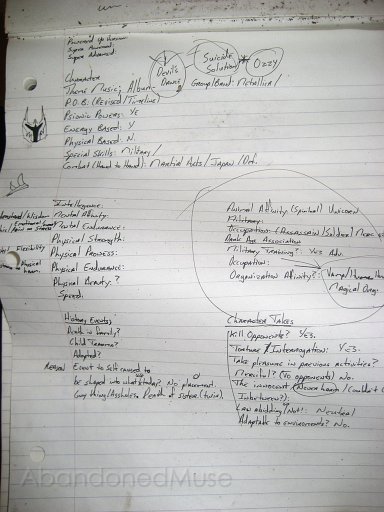 Powered Up
Suicide Solution
Ozzy
Devil's Dance
Character
Theme Music: Album: Group/Band: Metallica/
D.O.B. (Revised/Timeline)
Psionic Powers: YE
Energy Based: Y
Physical Based: N.
Special Skills: Military/
Combat (Hand to Hand): Martial Arts/Japan/
Intelligence:
Mental Affinity:
Mental Endurance:
Physical Strength:
Physical Prowess:
Physical Endurance:
Physical Beauty: ?
Speed:
Animal Affinity: (Spiritual) Unicorn
Military:
Occupation: (Assassin/Soldier) Merc
Association
Military Training?: YES Adv.
Occupation:
Organization Affinity?: Vamp/
Magical Org.
History Events:
Death in family?
Child Trauma?
Adopted?
Reason Event to Self caused to
be shaped into what today? No placement.
Guy thing/Asshole. Death of sister (twin).
Character Takes
Kill Opponents? YES.
Torture/Interrogation: YES.
Take pleasure in previous activities?
Merciful? (To opponents) No.
The innocent (Never harm/Couldn't
Inbetween?):
Law abiding/(Not): Neutral
Adaptable to environments? No.
AbandonedMuse